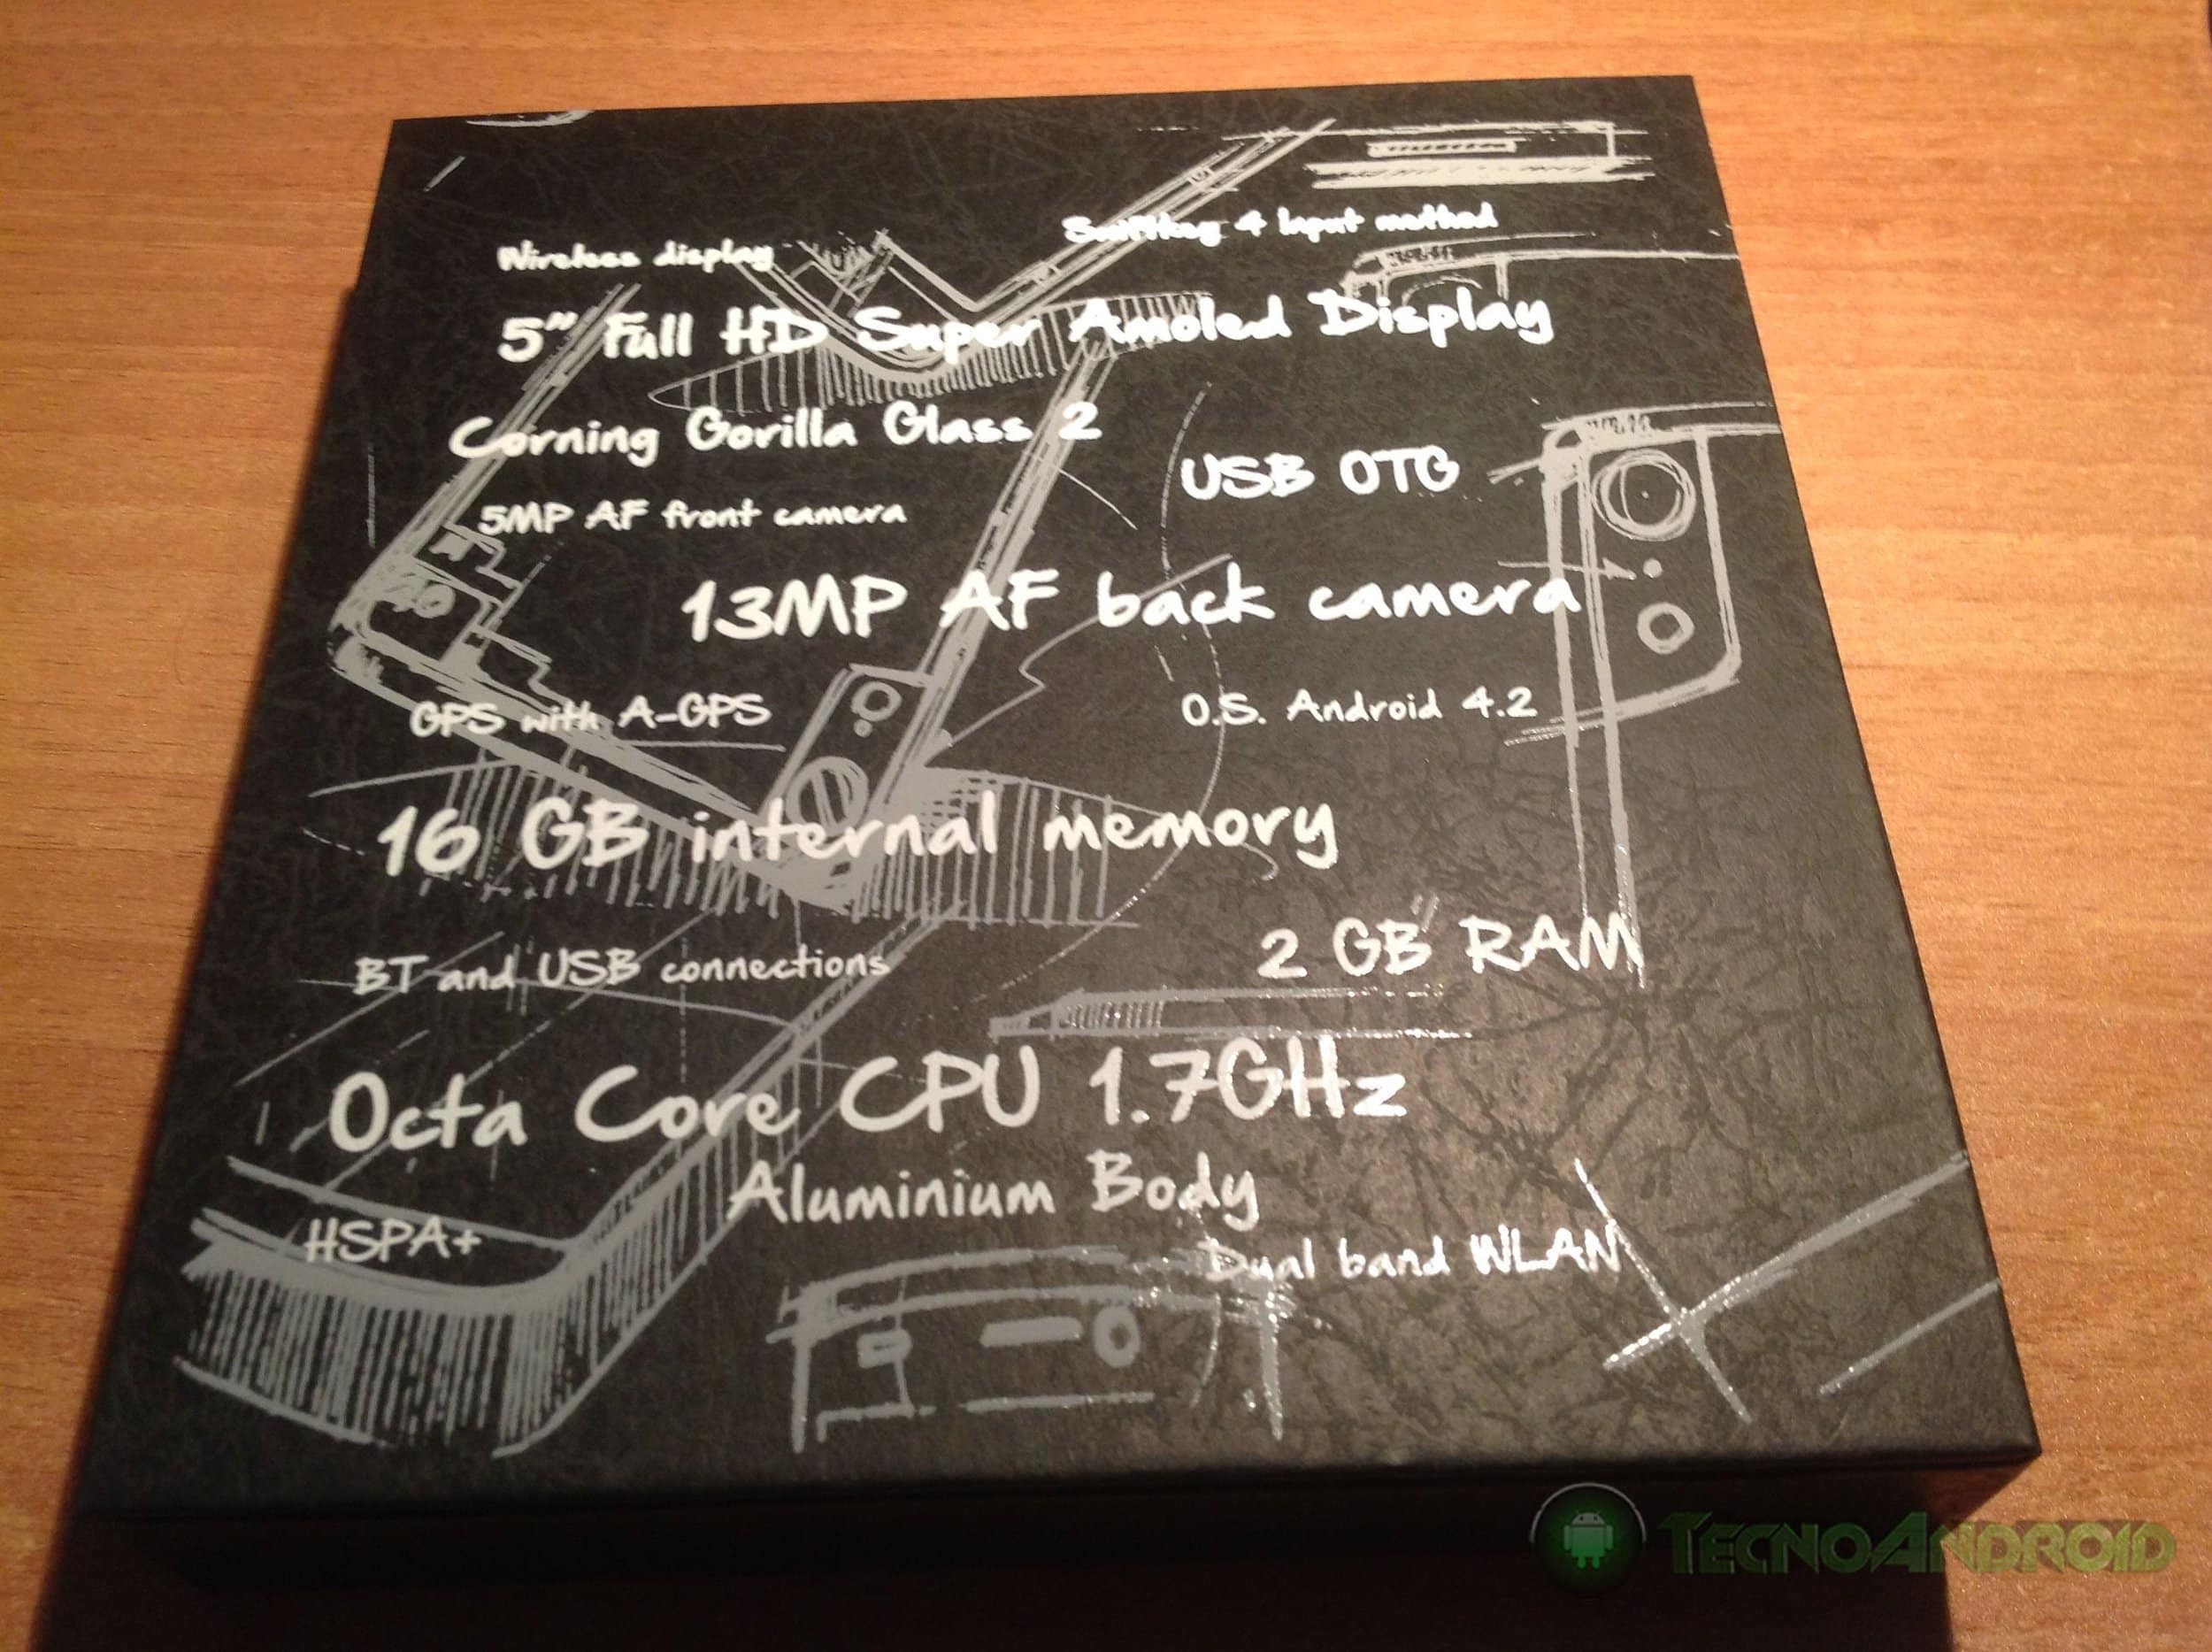 Wireless display
Swiftkey 4 Input method
5" Full HD Super Amoled Display
Corning Gorilla Glass 2
USB OTG
5MP AF front camera
13MP AF back camera
GPS with A-GPS
O.S. Android 4.2
16 GB internal memory
2 GB RAM
BT and USB connections
Octa Core CPU 1.7GHz
Aluminium Body
HSPA+
Dual band WLAN
TECNOANDROID